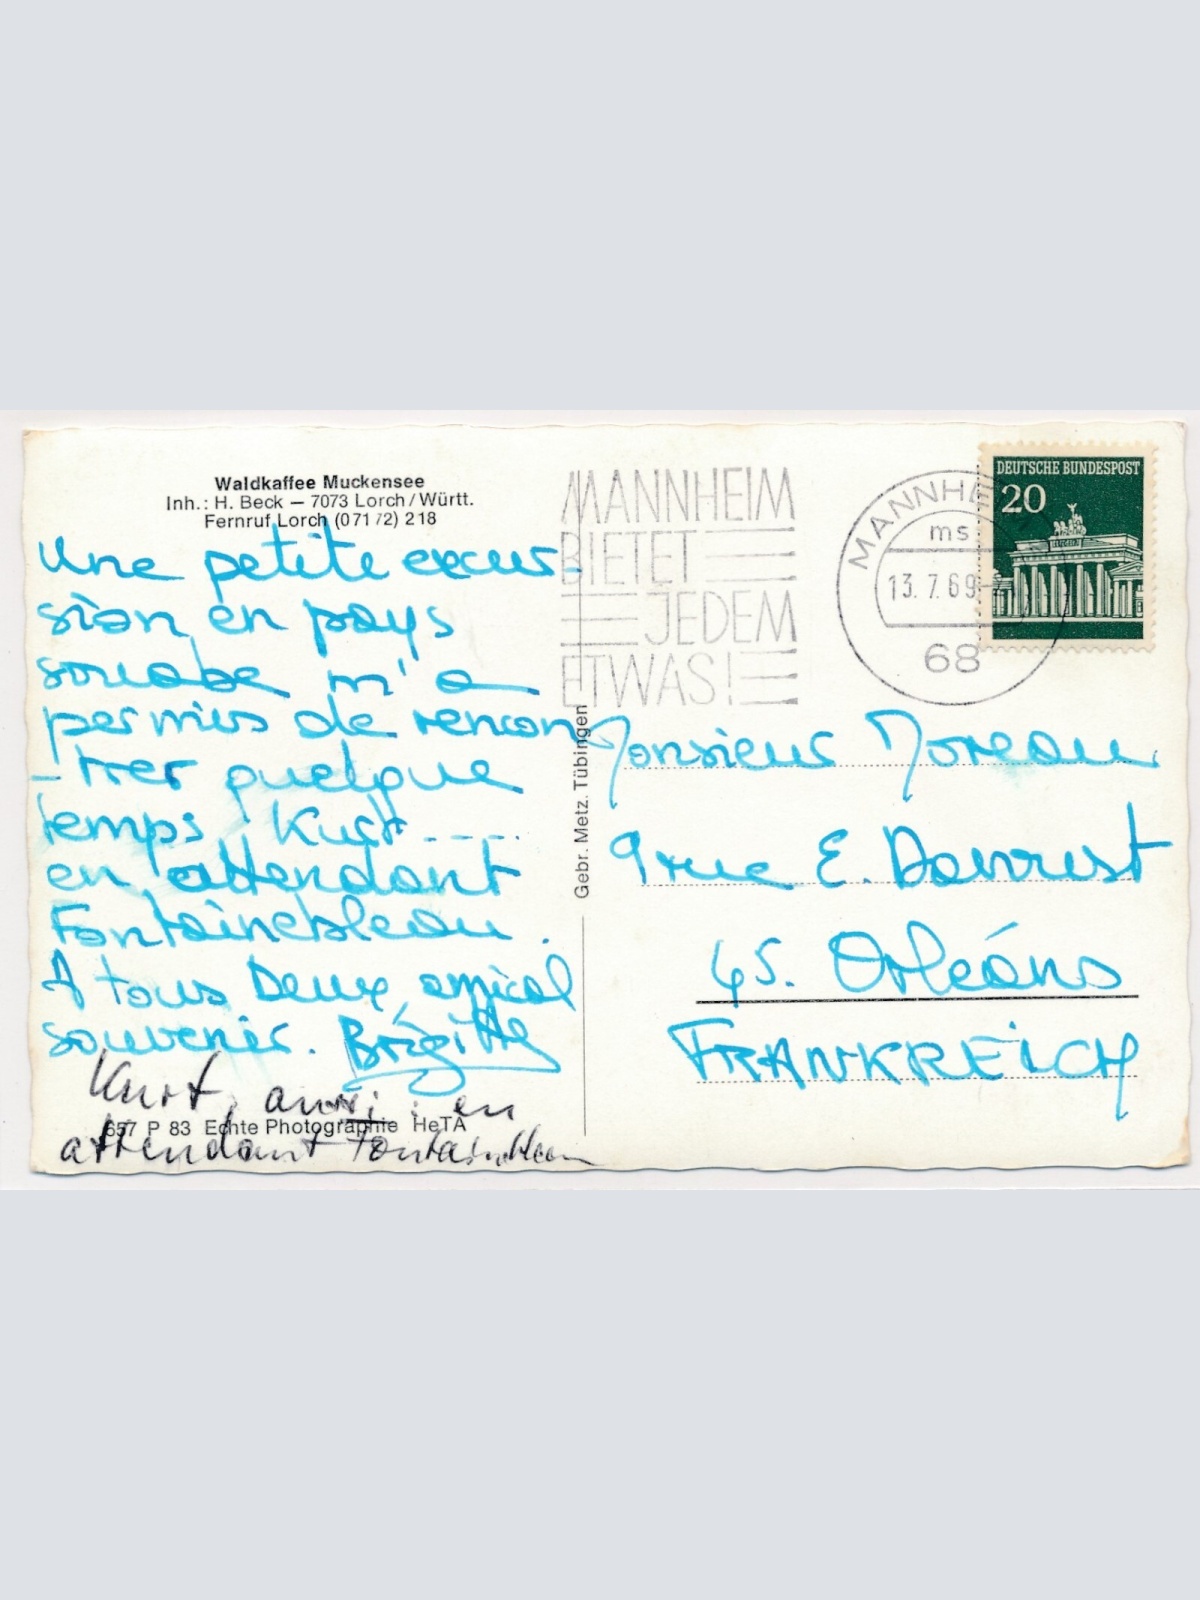 Waldkaffee Muckensee
Inh.: H. Beck — 7073 Lorch / Württ.
Fernruf Lorch (07172) 218
Une petite excur-
sion en pays
souabe m'a
permis de rencon
-trer quelque
temps Kurt ----
en attendant
Fontainebleau.
A tous Deux, amical
souvenir. Brigitte
Kurt, aussi: en
attendant Fontainebleau
657 P 83 Echte Photographie HeTA
Gebr. Metz, Tübingen
MANNHEIM
BIETET
JEDEM
ETWAS!
MANNHEIM
ms
13.7.69
68
DEUTSCHE BUNDESPOST
20
Monsieur Moreau
9 rue E.
45. Orléans
FRANKREICH